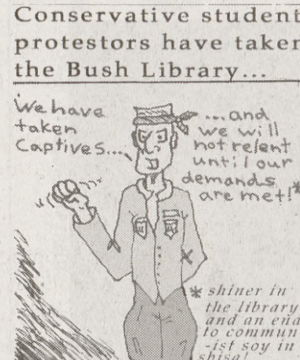 Conservative student
protestors have taken
the Bush Library...
We have
taken
Captives...
...and
we will
not relent
until our
demands
are met!*
* shiner in
the library
and an end
to commun
-ist soy in
shisa!